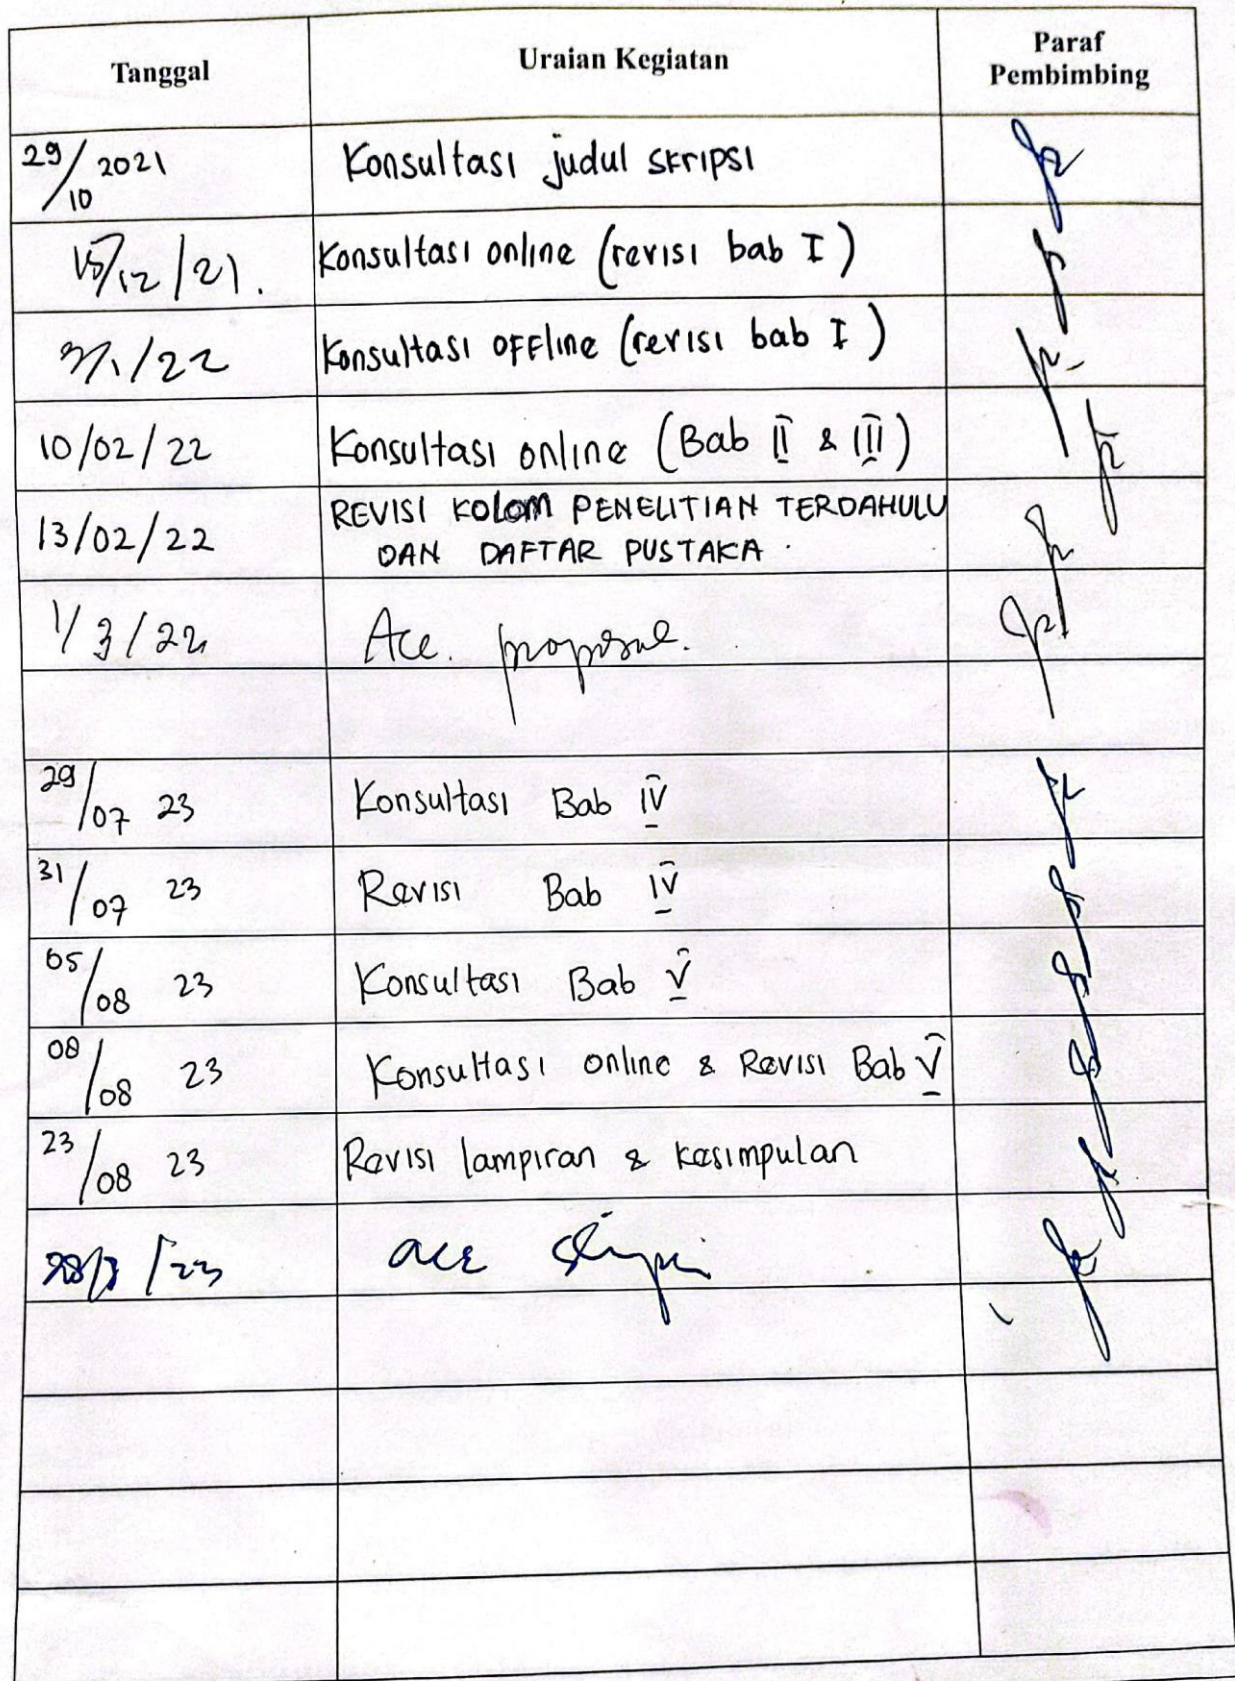 Tanggal
Uraian Kegiatan
Paraf
Pembimbing
29/10 2021
Konsultasi judul skripsi
15/12/21.
Konsultasi online (revisi bab I)
/1/22
Konsultasi offline (revisi bab I)
10/02/22
Konsultasi online (Bab II & III)
13/02/22
REVISI KOLOM PENELITIAN TERDAHULU
DAN DAFTAR PUSTAKA.
1/3/22
Acc. proposal.
29/07 23
Konsultasi Bab IV
31/07 23
Revisi Bab IV
05/08 23
Konsultasi Bab V
08/08 23
Konsultasi online & Revisi Bab V
23/08 23
Revisi lampiran & kesimpulan
acc skripsi